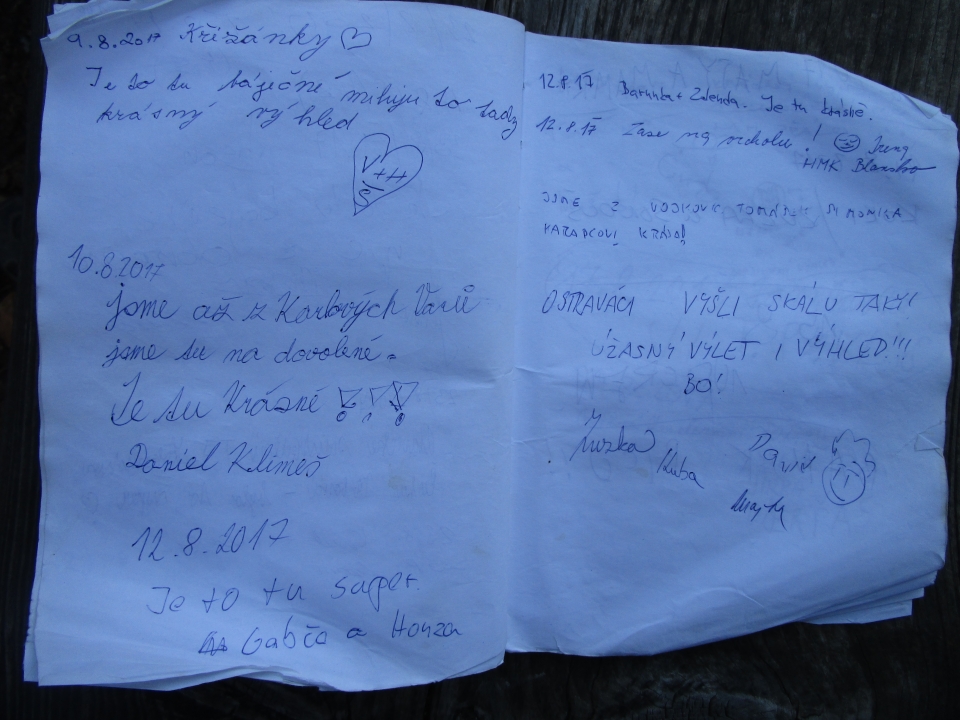 9.8.2017 Křižánky
Je to tu báječné miluju to tady
krásný výhled
V
++H
Š
10.8.2017
jsme až z Karlových Varů
jsme tu na dovolené.
Je tu Krásné !!!
Daniel Klimeš
12.8.2017
Je to tu super.
Gabča a Honza
12.8.17 Barunka + Zdenda. Je tu krásně.
12.8.17 Zase na vrcholu!
HMK Blansko
JSME Z
OSTRAVÁCI VYŠLI SKÁLU TAKY!
ÚŽASNÝ VÝLET I VÝHLED!!!
BO!
Zuzka
Kuba
David